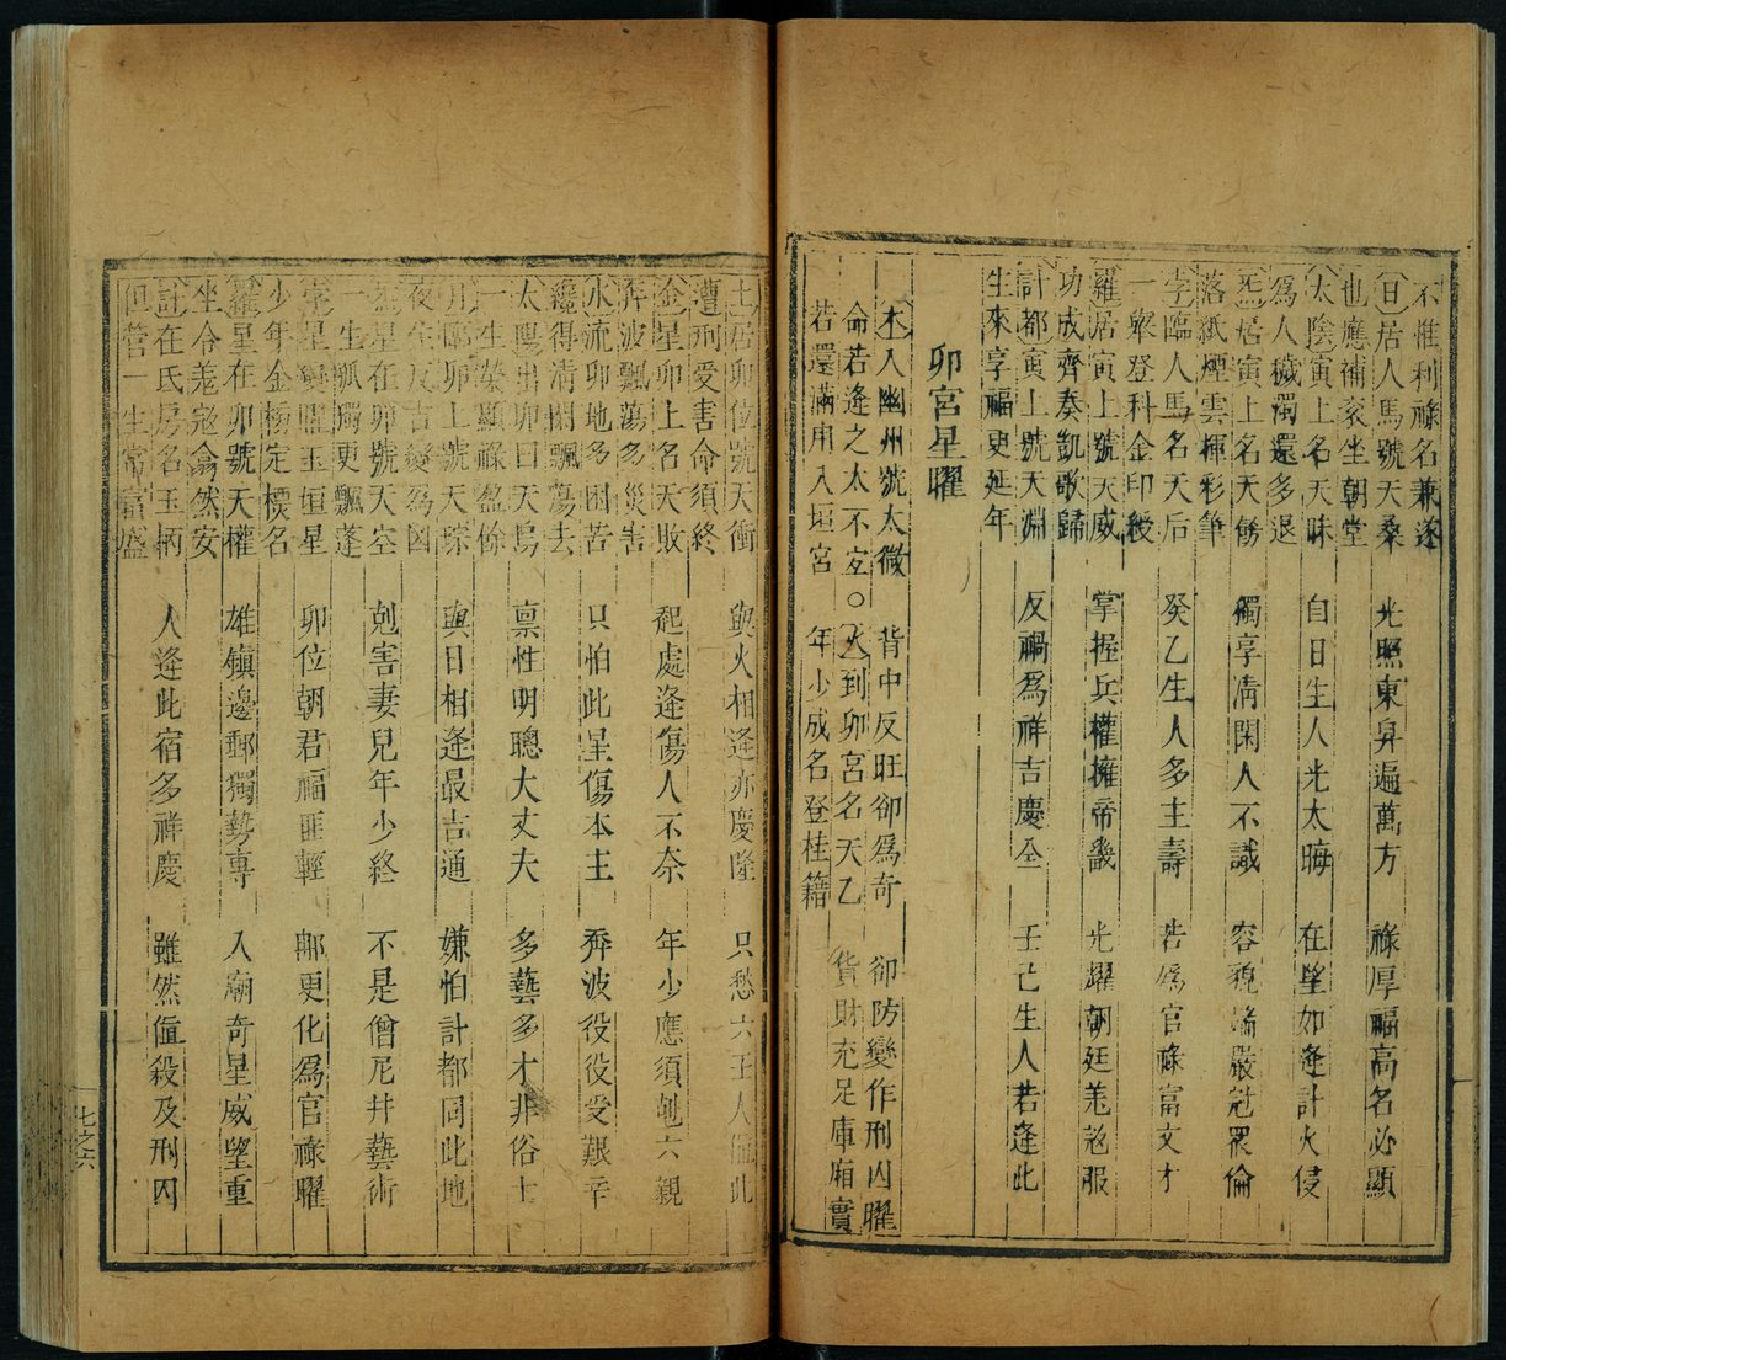 不惟利祿名兼遂
日居人馬號天桑　光照東昇遍萬方　祿厚福高名必顯
也應補袞坐朝堂
太陰寅上名天昧　自日生人光太晦　在望如逢計火侵
爲人穢濁還多退
炁居寅上名天傍　獨享清閑人不識　容貌端嚴冠衆倫
落紙煙雲揮彩筆
孛臨人馬名天后　癸乙生人多主壽　若爲官祿富文才
一舉登科金印綬
羅居寅上號天威　掌握兵權擁帝畿　光躍朝廷羌寇服
功成齊奏凱歌歸
計都寅上號天淵　反禍爲祥吉慶全　壬己生人若逢此
生來享福更延年
卯宮星曜
木入幽州號太微　背中反旺卻爲奇　卻防變作刑囚曜
命若逢之太不宜○火到卯宮名天乙　貨財充足庫廂實
若還滿用入垣宮　年少成名登桂籍
土居卯位號天衝　與火相逢亦慶隆　只愁六壬人值此
遭刑受害命須終
金星卯上名天敗　起處逢傷人不奈　年少應須剋六親
奔波飄蕩多災害
水流卯地多困苦　只怕此星傷本主　奔波役役受艱辛
纔得清閑飄蕩去
太陽出卯曰天烏　禀性明聰大丈夫　多藝多才非俗士
一生榮顯祿盈餘
月臨卯上號天琛　與日相逢最吉通　嫌怕計都同此地
夜生反吉變爲凶
炁星在卯號天空　剋害妻兒年少終　不是僧尼并藝術
一生孤獨更飄蓬
孛星卯曜玉垣星　卯位朝君福匪輕　那更化爲官祿曜
少年金榜定標名
羅星在卯號天權　雄鎮邊郵獨勢專　入廟奇星威望重
坐令羌寇翕然安
計在氐房名玉柄　人逢此宿多祥慶　雖然值殺及刑囚
但管一生常富盛
七之六